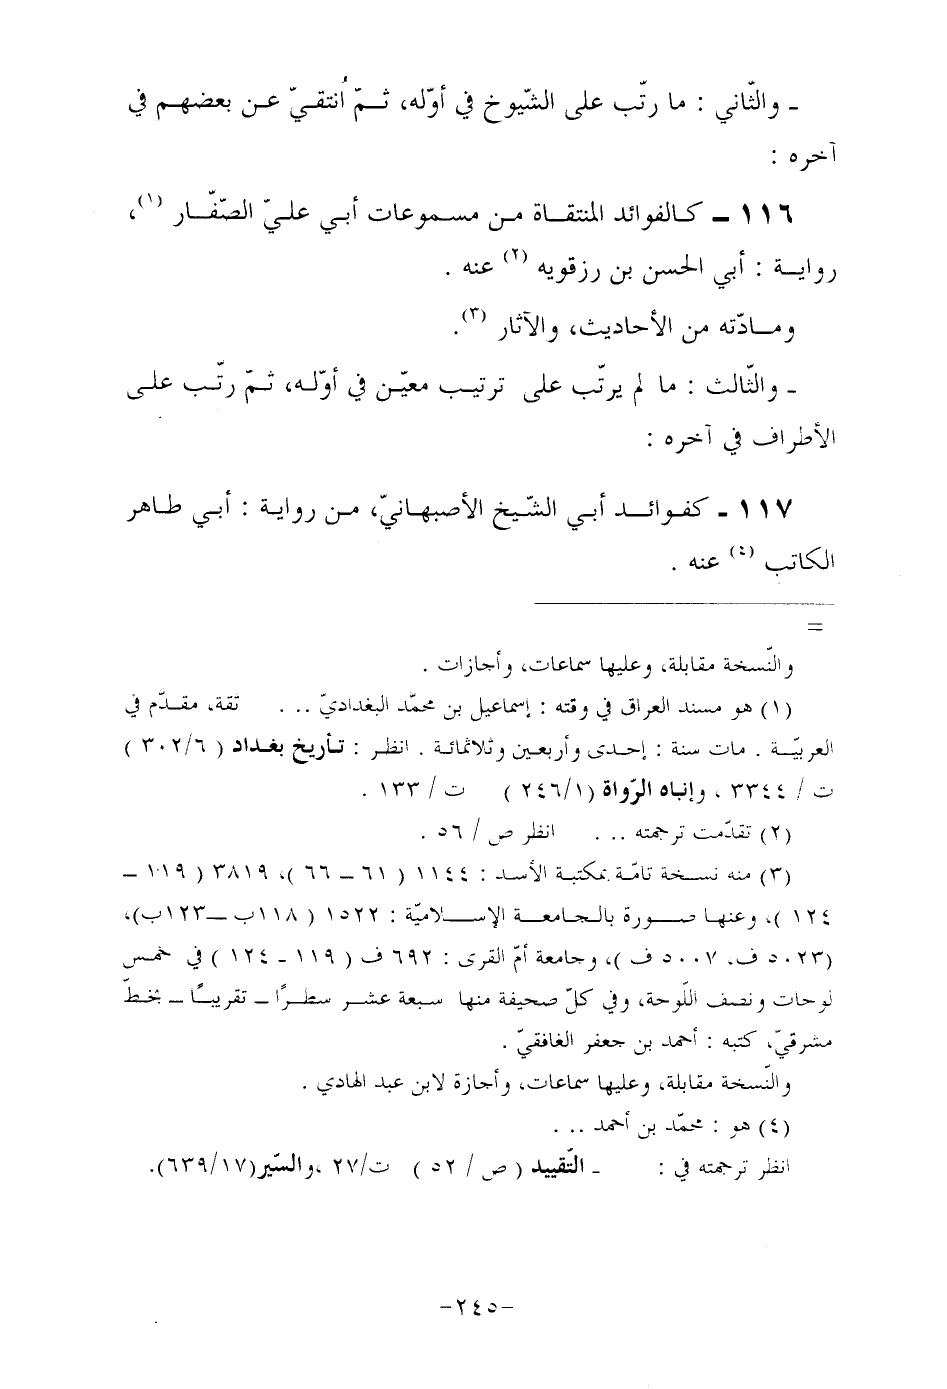 ـ والثّاني : ما رتّب على الشّيوخ في أوّله، ثـمّ أُنتقيّ عـن بعضهـم في
آخره :
١١٦ ـ كـالفوائد المنتقـاة مـن مسـموعات أبـي علـيّ الصّفّـار (١)،
روايـة : أبي الحسن بن رزقويه (٢) عنه .
ومـادّته من الأحاديث، والآثار (٣).
ـ والثّالث : ما لم يرتّب على ترتيب معيّن في أوّلـه، ثـمّ رتّـب علـى
الأطراف في آخره :
١١٧ ـ كفـوائـد أبـي الشّيخ الأصبهـانيّ، مـن روايـة : أبـي طـاهر
الكاتب (٤) عنه .
=
والنّسخة مقابلة، وعليها سماعات، وأجازات .
(١) هو مسند العراق في وقته : إسماعيل بن محمّد البغداديّ .. . ثقة، مقـدّم في
العربيّـة . مات سنة : إحـدى وأربعـين وثلاثمائـة . انظـر : تـأريخ بغـداد ( ٣٠٢/٦ )
ت / ٣٣٤٤ ، وإنباه الرّواة ( ٢٤٦/١ ) ت / ١٣٣ .
(٢) تقدّمت ترجمته .. . انظر ص / ٥٦ .
(٣) منه نسـخة تامّـة بمكتبـة الأسـد : ١١٤٤ ( ٦١ ـ ٦٦ )، ٣٨١٩ ( ١١٩ ـ
١٢٤ )، وعنهـا صـورة بالـجامعـة الإسـلاميّة : ١٥٢٢ ( ١١٨ب ـ ١٢٣ب)،
(٥٠٢٣ ف، ٥٠٠٧ ف )، وجامعة أمّ القرى : ٦٩٢ ف ( ١١٩ ـ ١٢٤ ) في خمـس
لوحات ونصف اللّوحة، وفي كلّ صحيفة منها سـبعة عشـر سـطـرًا ـ تقريبـًا ـ بخـطّ
مشرقيّ، كتبه : أحمد بن جعفر الغافقيّ .
والنّسخة مقابلة، وعليها سماعات، وأجازة لابن عبد الهادي .
(٤) هو : محمّد بن أحمد .. .
انظر ترجمته في : ـ التّقييد ( ص / ٥٢ ) ت/٢٧ ،والسّير(٦٣٩/١٧).
-٢٤٥-